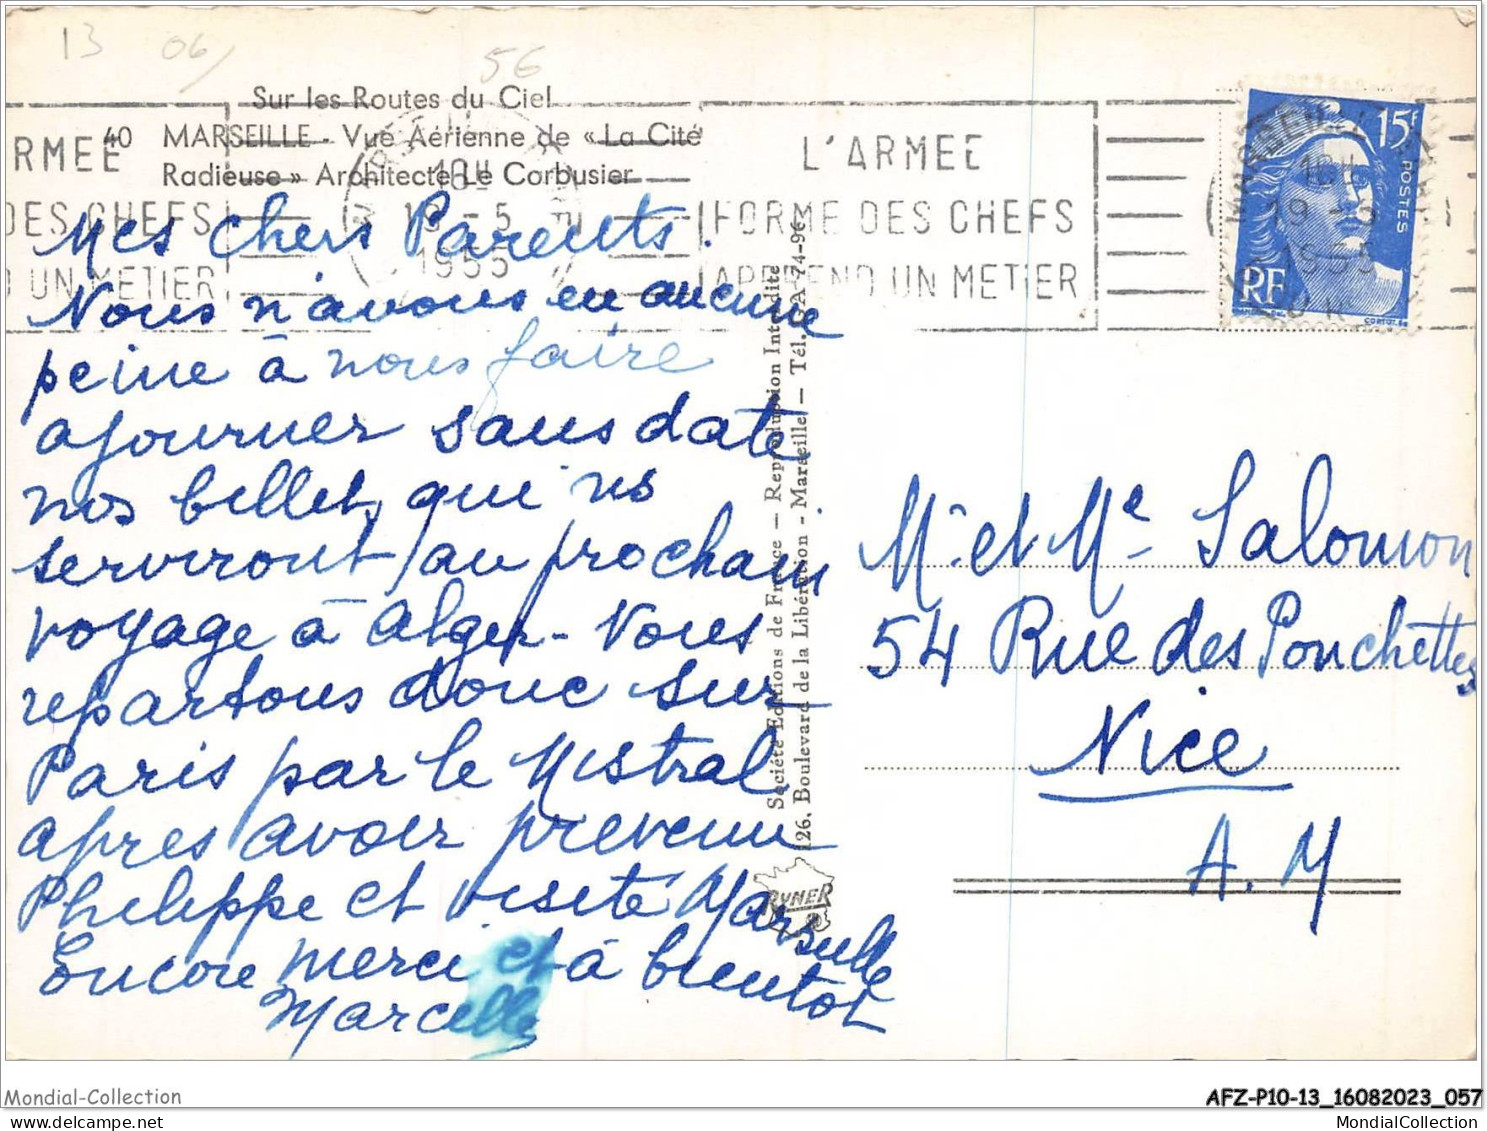 13 06/ 56
Sur les Routes du Ciel
40 MARSEILLE - Vue Aérienne de « La Cité
Radieuse » Architecte Le Corbusier
RMEE
DES CHEFS
UN METIER
18H
19 - 5
1955
L'ARMEE
FORME DES CHEFS
APPREND UN METIER
MARSEILLE
18H
19 - 5
1955
15F
POSTES
RF
Mes chers Parents.
Nous n'avons eu aucune
peine à nous faire
ajourner sans date
nos billets qui ns
serviront au prochain
voyage à Alger - Nous
repartons donc sur
Paris par le Mistral
après avoir prévenu
Philippe et visité Marseille
Encore merci et à bientôt
Marcelle
Société Editions de France — Reproduction Interdite
126, Boulevard de la Libération - Marseille — Tél. GA 74-96
RYNER
Mr et Me Salomon
54 Rue des Ponchettes
Nice
A. M
Mondial-Collection
AFZ-P10-13_16082023_057
www.delcampe.net
MondialCollection